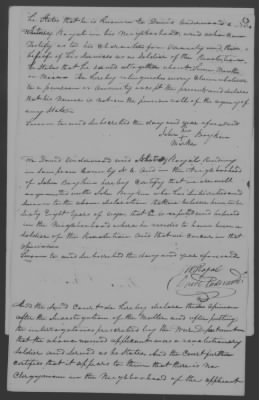 He States that he is known to David Underwood &
Whitney Royal in his Neighborhood, and who can
testify as to his character for veracity and their
belief of his services as a soldier of the Revolution.
he States that he served altogether about Seven Months
or more he hereby relinquishes every claim whatever
to a pension or annuity except the present and declares
that his name is not on the pension roll of the agency of
any State.
Sworn to and subscribed the day and year aforesaid
John Boykin
his
mark
We David Underwood and Royal Residing
in Sampson County N. C. and in the Neighborhood
of John Boykin hereby Certify that we are well
acquainted with John Boykin who has subscribed and
sworn to the above declaration that we believe him to be
Sixty Eight years of age that he is reputed and believed
in the Neighborhood where he resides to have been a
soldier of the Revolution and that we concur in that
opinion
Sworn to and subscribed the day and year aforesaid
Royal
David Underwood
And the Said Court do hereby declare their opinion
after the Investigation of the Matter and after putting
the interrogatories prescribed by the War Department
that the above named applicant was a revolutionary
Soldier and served as he States. And the Court further
certifies that it appears to them that there is no
Clergyman in the Neighborhood of the applicant